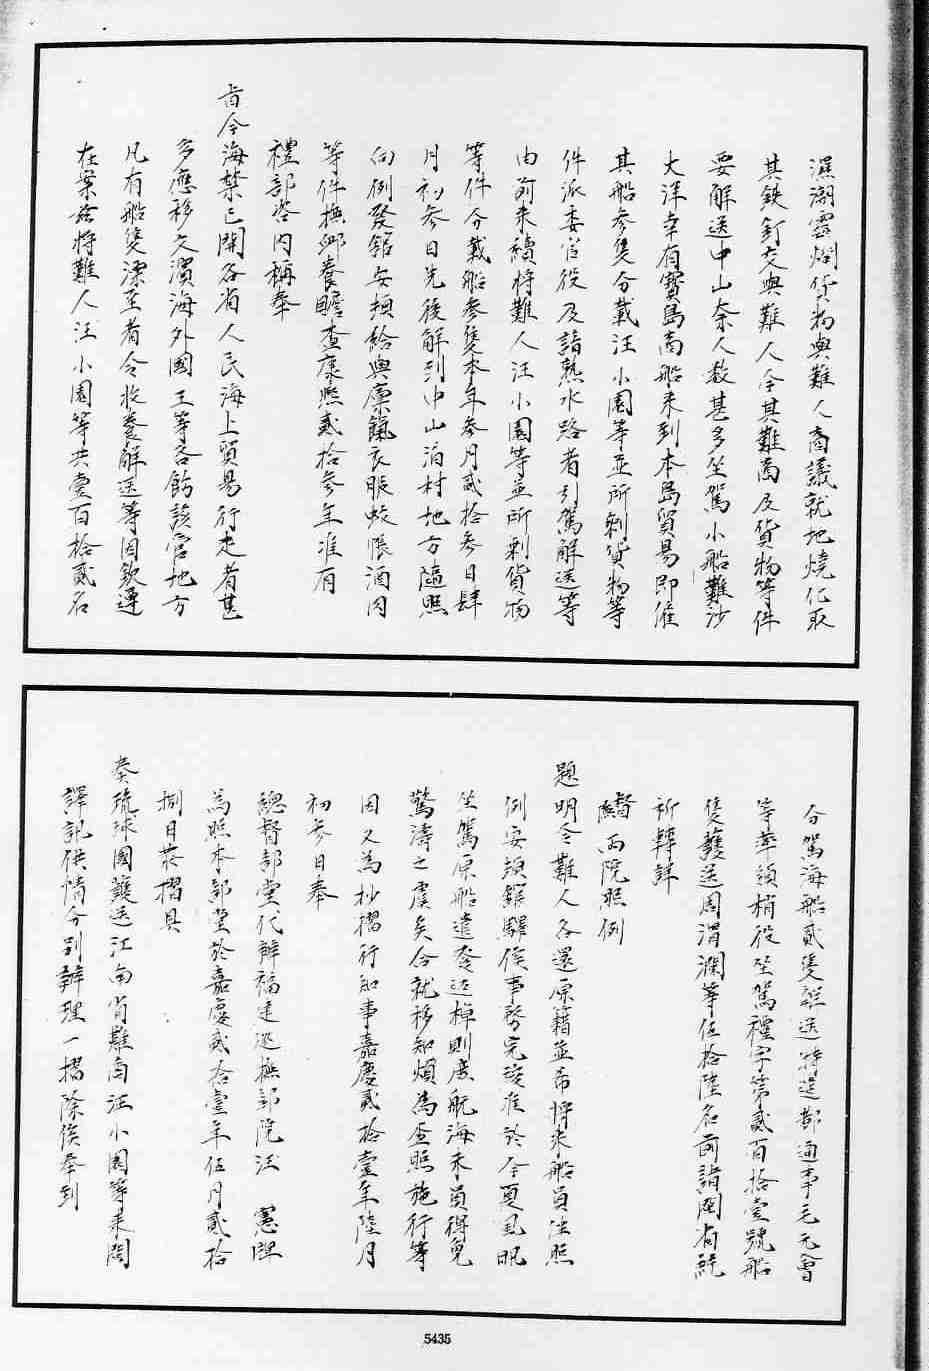 濕潮霉爛貨物與難人商議就地燒化取
其鉄釘交與難人令其難商及貨物等件
要解送中山奈人数甚多坐駕小船難涉
大洋幸有寶島商船来到本島貿易即催
其船参隻分載汪小園等並所剩貨物等
件派委官役及諳熟水路者引駕解送等
由前来續將難人汪小園等並所剩貨物
等件分載船参隻本年参月貳拾参日肆
月初参日先後解到中山泊村地方隨照
向例發館安頓給與廪餼衣服蚊帳酒肉
等件撫䘏養贍查康熙貳拾参年准有
禮部咨内稱奉
旨今海禁已開各省人民海上貿易行走者甚
多應移文濱海外國王等各飭該官地方
凡有船隻漂至者令收養解送等因欽遵
在案玆將難人汪小園等共壹百拾貳名
分駕海船貳隻經送特遣都通事毛元會
等率領梢役坐駕禮字第貳百拾壹號船
隻護送周渭瀾等伍拾陸名前詣閩省統
祈轉詳
督兩院照例
題明令難人各還原籍並希將来船員法照
例安頓舘驛俟事務完竣准於今夏風汎
坐駕原船遣發返棹則度航海未員得免
驚濤之虞矣合就移知煩為查照施行等
因又為抄摺行知事嘉慶貳拾壹年陸月
初参日奉
總督部堂代辦福建巡撫部院汪 憲牌
為照本部堂於嘉慶貳拾壹年伍月貳拾
捌日恭摺具
奏琉球國護送江南省難商汪小園等来閩
譯訊供情分別辦理一摺除俟奉到
5435